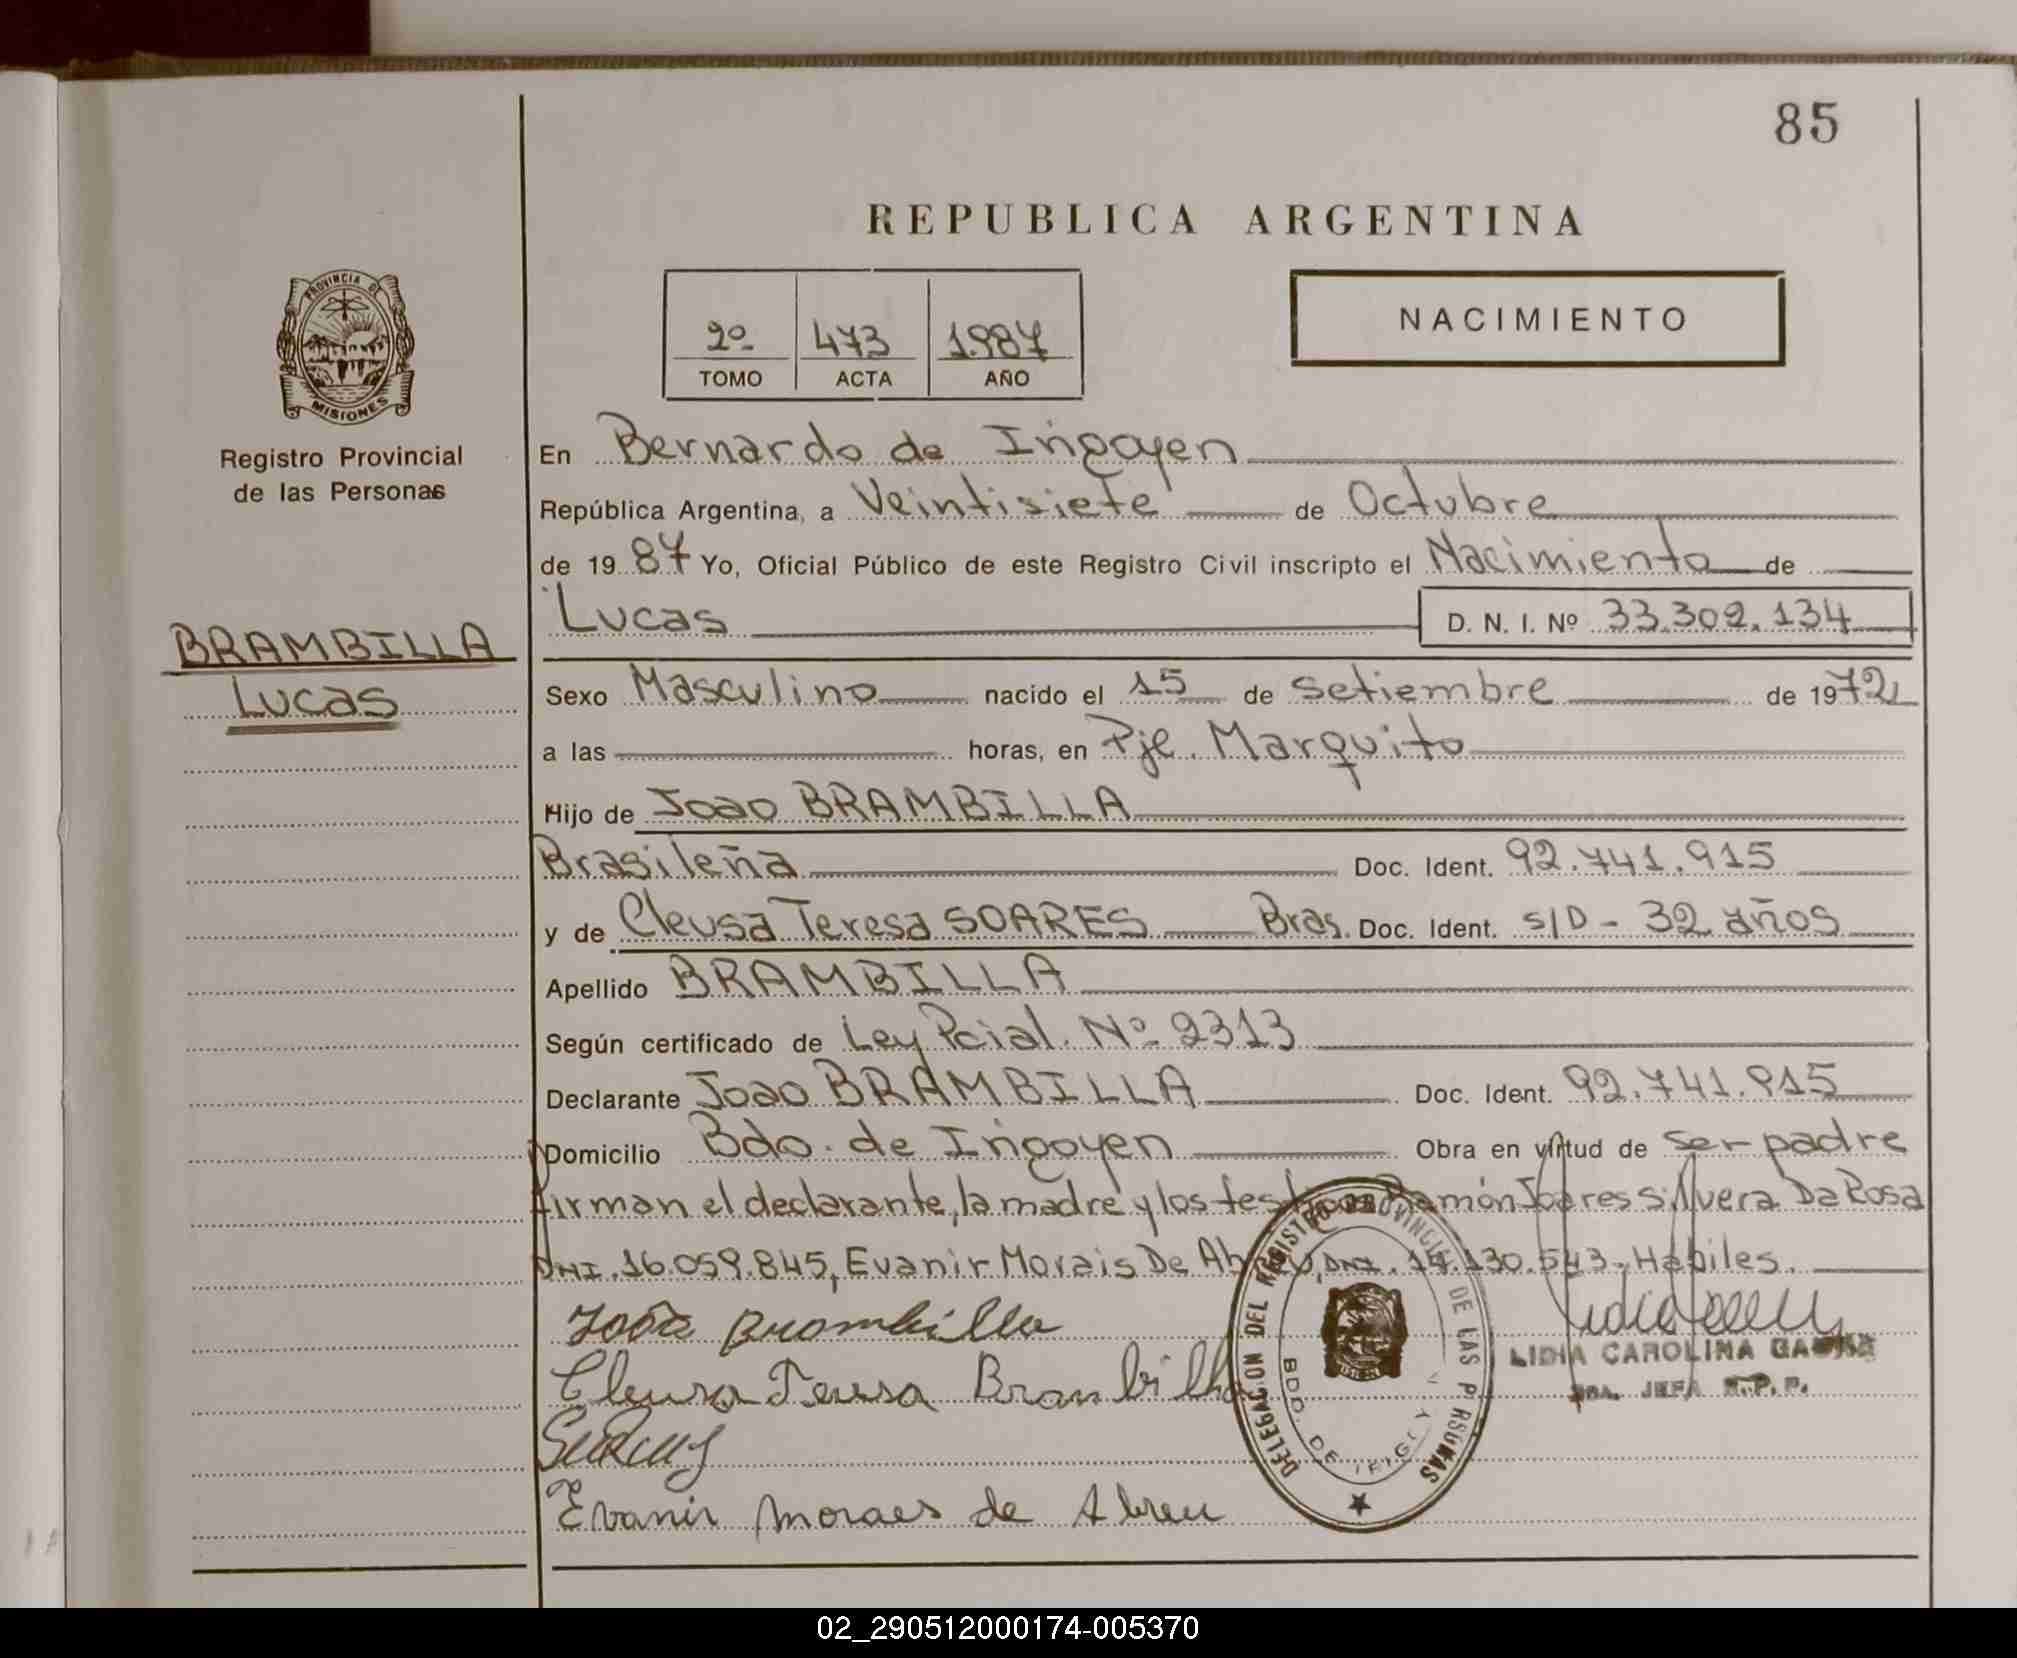 85
REPUBLICA ARGENTINA
PROVINCIA DE
MISIONES
Registro Provincial
de las Personas
2º 473 1.987
TOMO ACTA AÑO
NACIMIENTO
En Bernardo de Irigoyen
República Argentina, a Veintisiete de Octubre
de 19 87 Yo, Oficial Público de este Registro Civil inscripto el Nacimiento de
Lucas D. N. I. Nº 33.302.134
BRAMBILLA
Lucas
Sexo Masculino nacido el 15 de Setiembre de 1972
a las horas, en Pje. Marquito
Hijo de Joao BRAMBILLA
Brasileña Doc. Ident. 92.741.915
y de Cleusa Teresa SOARES Bras. Doc. Ident. S/D - 32 años
Apellido BRAMBILLA
Según certificado de Ley Pcial. Nº 2313
Declarante Joao BRAMBILLA Doc. Ident. 92.741.915
Domicilio Bdo. de Irigoyen Obra en virtud de Ser padre
firman el declarante, la madre y los testigos Ramón Soares Silvera Da Rosa
DNI. 16.059.845, Evanir Morais De Abreu, DNI. 14.130.543, Hábiles.
João Brambilla
Cleusa Teresa Brambilha
Evanir Moraes de Abreu
DELEGACION DEL REGISTRO PROVINCIAL DE LAS PERSONAS
BDO. DE IRIGOYEN
LIDIA CAROLINA
JEFA R.P.P.
02_290512000174-005370